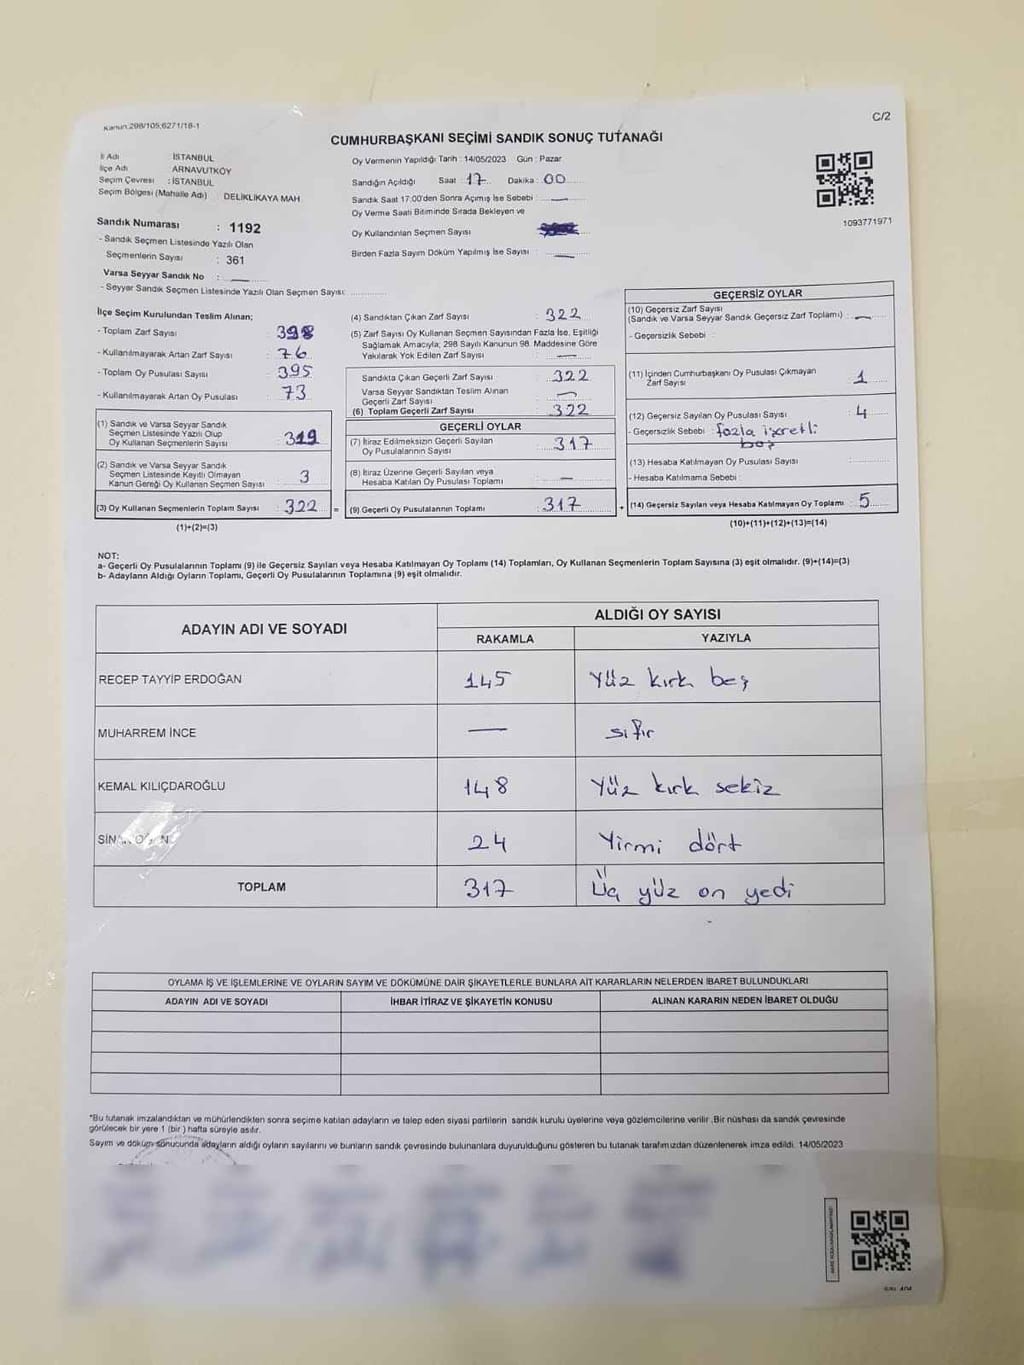 Kanun:298/105;6271/18-1
C/2
CUMHURBAŞKANI SEÇİMİ SANDIK SONUÇ TUTANAĞI
İl Adı İSTANBUL
İlçe Adı ARNAVUTKÖY
Seçim Çevresi : İSTANBUL
Seçim Bölgesi (Mahalle Adı) DELİKLİKAYA MAH
Sandık Numarası : 1192
- Sandık Seçmen Listesinde Yazılı Olan
Seçmenlerin Sayısı : 361
Varsa Seyyar Sandık No : —
- Seyyar Sandık Seçmen Listesinde Yazılı Olan Seçmen Sayısı: ............
Oy Vermenin Yapıldığı Tarih : 14/05/2023 Gün : Pazar
Sandığın Açıldığı Saat : 17 Dakika : 00
Sandık Saat 17:00'den Sonra Açımış İse Sebebi : —
Oy Verme Saati Bitiminde Sırada Bekleyen ve
Oy Kullandırılan Seçmen Sayısı
Birden Fazla Sayım Döküm Yapılmış İse Sayısı : —
1093771971
İlçe Seçim Kurulundan Teslim Alınan;
- Toplam Zarf Sayısı : 398
- Kullanılmayarak Artan Zarf Sayısı : 76
- Toplam Oy Pusulası Sayısı : 395
- Kullanılmayarak Artan Oy Pusulası : 73
(1) Sandık ve Varsa Seyyar Sandık
Seçmen Listesinde Yazılı Olup
Oy Kullanan Seçmenlerin Sayısı : 319
(2) Sandık ve Varsa Seyyar Sandık
Seçmen Listesinde Kayıtlı Olmayan
Kanun Gereği Oy Kullanan Seçmen Sayısı : 3
(3) Oy Kullanan Seçmenlerin Toplam Sayısı : 322 =
(1)+(2)=(3)
(4) Sandıktan Çıkan Zarf Sayısı : 322
(5) Zarf Sayısı Oy Kullanan Seçmen Sayısından Fazla İse, Eşitliği
Sağlamak Amacıyla; 298 Sayılı Kanunun 98. Maddesine Göre
Yakılarak Yok Edilen Zarf Sayısı : —
Sandıkta Çıkan Geçerli Zarf Sayısı : 322
Varsa Seyyar Sandıktan Teslim Alınan
Geçerli Zarf Sayısı : —
(6) Toplam Geçerli Zarf Sayısı : 322
GEÇERLİ OYLAR
(7) İtiraz Edilmeksizin Geçerli Sayılan
Oy Pusulalarının Sayısı : 317
(8) İtiraz Üzerine Geçerli Sayılan veya
Hesaba Katılan Oy Pusulası Toplamı : —
(9) Geçerli Oy Pusulalarının Toplamı : 317 +
GEÇERSİZ OYLAR
(10) Geçersiz Zarf Sayısı
(Sandık ve Varsa Seyyar Sandık Geçersiz Zarf Toplamı) : —
- Geçersizlik Sebebi :
(11) İçinden Cumhurbaşkanı Oy Pusulası Çıkmayan
Zarf Sayısı : 1
(12) Geçersiz Sayılan Oy Pusulası Sayısı : 4
- Geçersizlik Sebebi : fazla işretli
boş
(13) Hesaba Katılmayan Oy Pusulası Sayısı :
- Hesaba Katılmama Sebebi :
(14) Geçersiz Sayılan veya Hesaba Katılmayan Oy Toplamı : 5
(10)+(11)+(12)+(13)=(14)
NOT:
a- Geçerli Oy Pusulalarının Toplamı (9) ile Geçersiz Sayılan veya Hesaba Katılmayan Oy Toplamı (14) Toplamları, Oy Kullanan Seçmenlerin Toplam Sayısına (3) eşit olmalıdır. (9)+(14)=(3)
b- Adayların Aldığı Oyların Toplamı, Geçerli Oy Pusulalarının Toplamına (9) eşit olmalıdır.
ADAYIN ADI VE SOYADI ALDIĞI OY SAYISI
RAKAMLA YAZIYLA
RECEP TAYYİP ERDOĞAN 145 Yüz kırk beş
MUHARREM İNCE — sıfır
KEMAL KILIÇDAROĞLU 148 Yüz kırk sekiz
SİNAN OĞAN 24 Yirmi dört
TOPLAM 317 Üç yüz on yedi
OYLAMA İŞ VE İŞLEMLERİNE VE OYLARIN SAYIM VE DÖKÜMÜNE DAİR ŞİKAYETLERLE BUNLARA AİT KARARLARIN NELERDEN İBARET BULUNDUKLARI
ADAYIN ADI VE SOYADI İHBAR İTİRAZ VE ŞİKAYETİN KONUSU ALINAN KARARIN NEDEN İBARET OLDUĞU
*Bu tutanak imzalandıktan ve mühürlendikten sonra seçime katılan adayların ve talep eden siyasi partilerin sandık kurulu üyelerine veya gözlemcilerine verilir .Bir nüshası da sandık çevresinde
görülecek bir yere 1 (bir) hafta süreyle asılır.
Sayım ve döküm sonucunda adayların aldığı oyların sayılarını ve bunların sandık çevresinde bulunanlara duyurulduğunu gösteren bu tutanak tarafımızdan düzenlenerek imza edildi. 14/05/2023